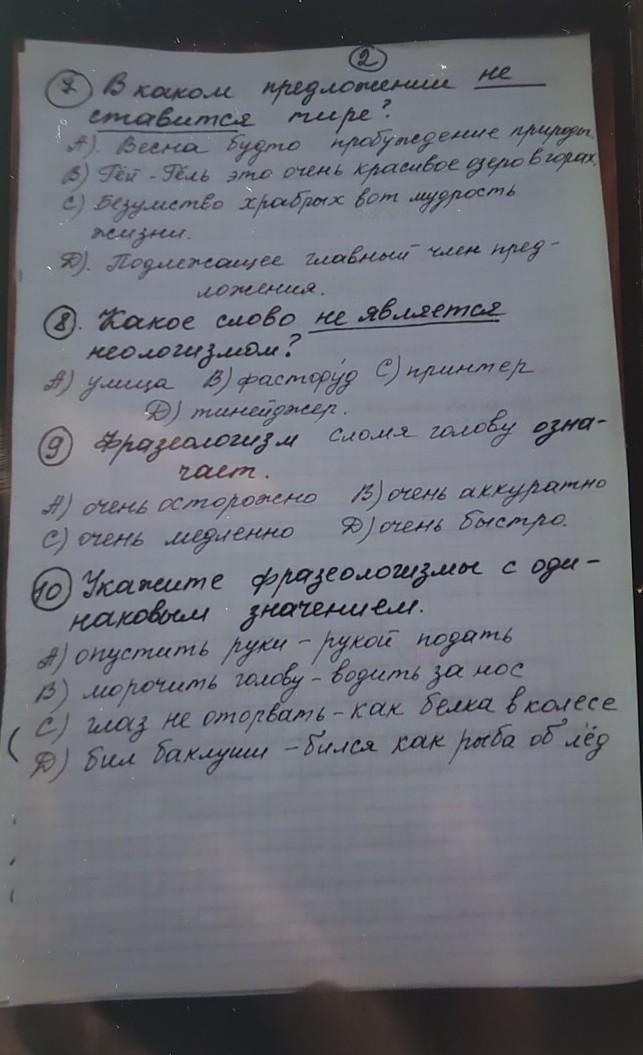 2
7 В каком предложении не
ставится тире?
А). Весна будто пробуждение природы.
В) Гёй-Гёль это очень красивое озеро в горах.
С) Безумство храбрых вот мудрость
жизни.
Д). Подлежащее главный член пред-
ложения.
8. Какое слово не является
неологизмом?
А) улица В) фасторуд С) принтер
Д) тинейджер.
9 Фразеологизм сломя голову озна-
чает.
А) очень осторожно В) очень аккуратно
С) очень медленно Д) очень быстро.
10 Укажите фразеологизмы с оди-
наковым значением.
А) опустить руки - рукой подать
В) морочить голову - водить за нос
С) глаз не оторвать - как белка в колесе
Д) бил баклуши - бился как рыба об лёд